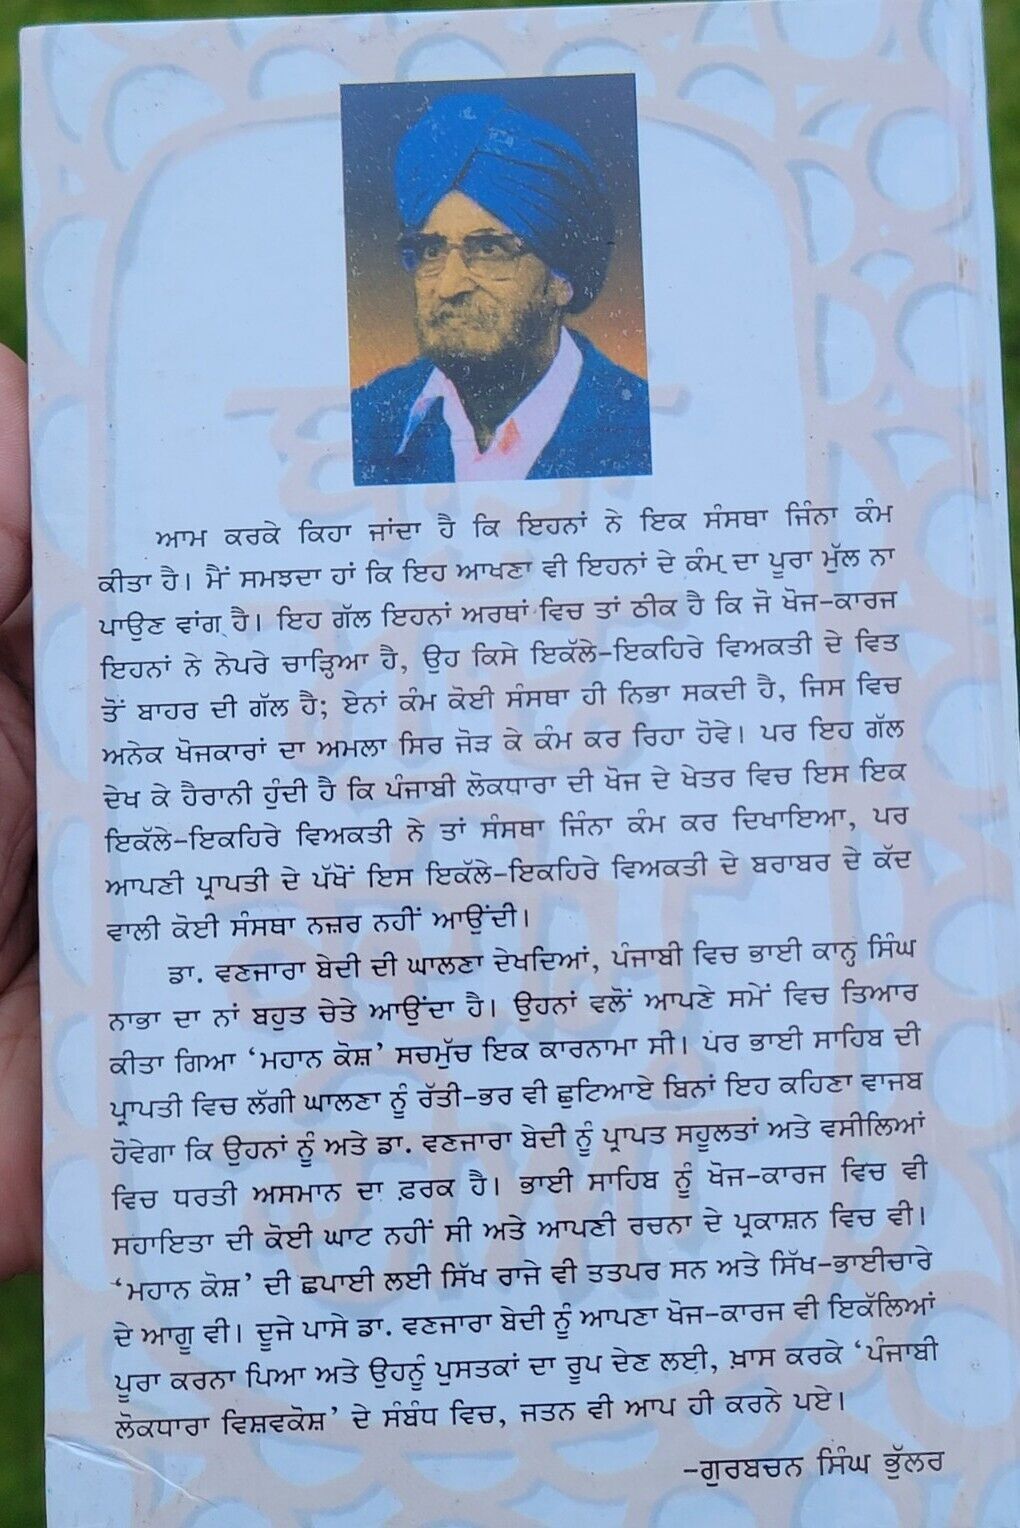 ਆਮ ਕਰਕੇ ਕਿਹਾ ਜਾਂਦਾ ਹੈ ਕਿ ਇਹਨਾਂ ਨੇ ਇਕ ਸੰਸਥਾ ਜਿੰਨਾ ਕੰਮ
ਕੀਤਾ ਹੈ। ਮੈਂ ਸਮਝਦਾ ਹਾਂ ਕਿ ਇਹ ਆਖਣਾ ਵੀ ਇਹਨਾਂ ਦੇ ਕੰਮ ਦਾ ਪੂਰਾ ਮੁੱਲ ਨਾ
ਪਾਉਣ ਵਾਂਗ ਹੈ। ਇਹ ਗੱਲ ਇਹਨਾਂ ਅਰਥਾਂ ਵਿਚ ਤਾਂ ਠੀਕ ਹੈ ਕਿ ਜੋ ਖੋਜ-ਕਾਰਜ
ਇਹਨਾਂ ਨੇ ਨੇਪਰੇ ਚਾੜ੍ਹਿਆ ਹੈ, ਉਹ ਕਿਸੇ ਇਕੱਲੇ-ਇਕਹਿਰੇ ਵਿਅਕਤੀ ਦੇ ਵਿਤ
ਤੋਂ ਬਾਹਰ ਦੀ ਗੱਲ ਹੈ; ਏਨਾਂ ਕੰਮ ਕੋਈ ਸੰਸਥਾ ਹੀ ਨਿਭਾ ਸਕਦੀ ਹੈ, ਜਿਸ ਵਿਚ
ਅਨੇਕ ਖੋਜਕਾਰਾਂ ਦਾ ਅਮਲਾ ਸਿਰ ਜੋੜ ਕੇ ਕੰਮ ਕਰ ਰਿਹਾ ਹੋਵੇ। ਪਰ ਇਹ ਗੱਲ
ਦੇਖ ਕੇ ਹੈਰਾਨੀ ਹੁੰਦੀ ਹੈ ਕਿ ਪੰਜਾਬੀ ਲੋਕਧਾਰਾ ਦੀ ਖੋਜ ਦੇ ਖੇਤਰ ਵਿਚ ਇਸ ਇਕ
ਇਕੱਲੇ-ਇਕਹਿਰੇ ਵਿਅਕਤੀ ਨੇ ਤਾਂ ਸੰਸਥਾ ਜਿੰਨਾ ਕੰਮ ਕਰ ਦਿਖਾਇਆ, ਪਰ
ਆਪਣੀ ਪ੍ਰਾਪਤੀ ਦੇ ਪੱਖੋਂ ਇਸ ਇਕੱਲੇ-ਇਕਹਿਰੇ ਵਿਅਕਤੀ ਦੇ ਬਰਾਬਰ ਦੇ ਕੱਦ
ਵਾਲੀ ਕੋਈ ਸੰਸਥਾ ਨਜ਼ਰ ਨਹੀਂ ਆਉਂਦੀ।
ਡਾ. ਵਣਜਾਰਾ ਬੇਦੀ ਦੀ ਘਾਲਣਾ ਦੇਖਦਿਆਂ, ਪੰਜਾਬੀ ਵਿਚ ਭਾਈ ਕਾਨ੍ਹ ਸਿੰਘ
ਨਾਭਾ ਦਾ ਨਾਂ ਬਹੁਤ ਚੇਤੇ ਆਉਂਦਾ ਹੈ। ਉਹਨਾਂ ਵਲੋਂ ਆਪਣੇ ਸਮੇਂ ਵਿਚ ਤਿਆਰ
ਕੀਤਾ ਗਿਆ ‘ਮਹਾਨ ਕੋਸ਼’ ਸਚਮੁੱਚ ਇਕ ਕਾਰਨਾਮਾ ਸੀ। ਪਰ ਭਾਈ ਸਾਹਿਬ ਦੀ
ਪ੍ਰਾਪਤੀ ਵਿਚ ਲੱਗੀ ਘਾਲਣਾ ਨੂੰ ਰੱਤੀ-ਭਰ ਵੀ ਛੁਟਿਆਏ ਬਿਨਾਂ ਇਹ ਕਹਿਣਾ ਵਾਜਬ
ਹੋਵੇਗਾ ਕਿ ਉਹਨਾਂ ਨੂੰ ਅਤੇ ਡਾ. ਵਣਜਾਰਾ ਬੇਦੀ ਨੂੰ ਪ੍ਰਾਪਤ ਸਹੂਲਤਾਂ ਅਤੇ ਵਸੀਲਿਆਂ
ਵਿਚ ਧਰਤੀ ਅਸਮਾਨ ਦਾ ਫ਼ਰਕ ਹੈ। ਭਾਈ ਸਾਹਿਬ ਨੂੰ ਖੋਜ-ਕਾਰਜ ਵਿਚ ਵੀ
ਸਹਾਇਤਾ ਦੀ ਕੋਈ ਘਾਟ ਨਹੀਂ ਸੀ ਅਤੇ ਆਪਣੀ ਰਚਨਾ ਦੇ ਪ੍ਰਕਾਸ਼ਨ ਵਿਚ ਵੀ।
‘ਮਹਾਨ ਕੋਸ਼’ ਦੀ ਛਪਾਈ ਲਈ ਸਿੱਖ ਰਾਜੇ ਵੀ ਤਤਪਰ ਸਨ ਅਤੇ ਸਿੱਖ-ਭਾਈਚਾਰੇ
ਦੇ ਆਗੂ ਵੀ। ਦੂਜੇ ਪਾਸੇ ਡਾ. ਵਣਜਾਰਾ ਬੇਦੀ ਨੂੰ ਆਪਣਾ ਖੋਜ-ਕਾਰਜ ਵੀ ਇਕੱਲਿਆਂ
ਪੂਰਾ ਕਰਨਾ ਪਿਆ ਅਤੇ ਉਹਨੂੰ ਪੁਸਤਕਾਂ ਦਾ ਰੂਪ ਦੇਣ ਲਈ, ਖ਼ਾਸ ਕਰਕੇ ‘ਪੰਜਾਬੀ
ਲੋਕਧਾਰਾ ਵਿਸ਼ਵਕੋਸ਼’ ਦੇ ਸੰਬੰਧ ਵਿਚ, ਜਤਨ ਵੀ ਆਪ ਹੀ ਕਰਨੇ ਪਏ।
-ਗੁਰਬਚਨ ਸਿੰਘ ਭੁੱਲਰ